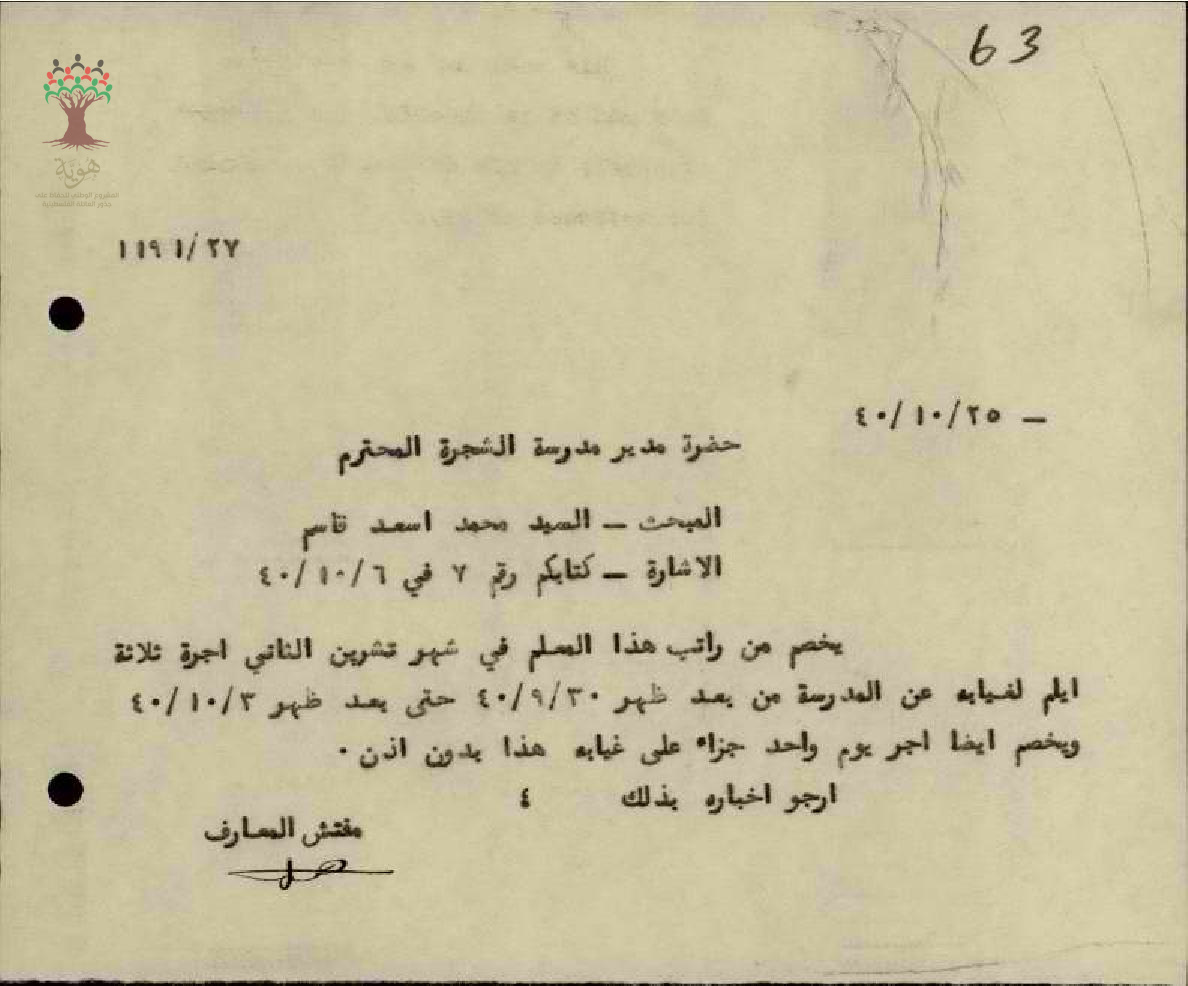 63
هوية
المشروع الوطني للحفاظ على
جذور العائلة الفلسطينية
١١٩١/٢٧
٤٠/١٠/٢٥ —
حضرة مدير مدرسة الشجرة المحترم
المبحث — السيد محمد اسعد قاسم
الاشارة — كتابكم رقم ٧ في ٤٠/١٠/٦
يخصم من راتب هذا المعلم في شهر تشرين الثاني اجرة ثلاثة
ايلم لغيابه عن المدرسة من بعد ظهر ٤٠/٩/٣٠ حتى بعد ظهر ٤٠/١٠/٣
ويخصم ايضا اجر يوم واحد جزاء على غيابه هذا بدون اذن ٠
ارجو اخباره بذلك ٤
مفتش المعارف